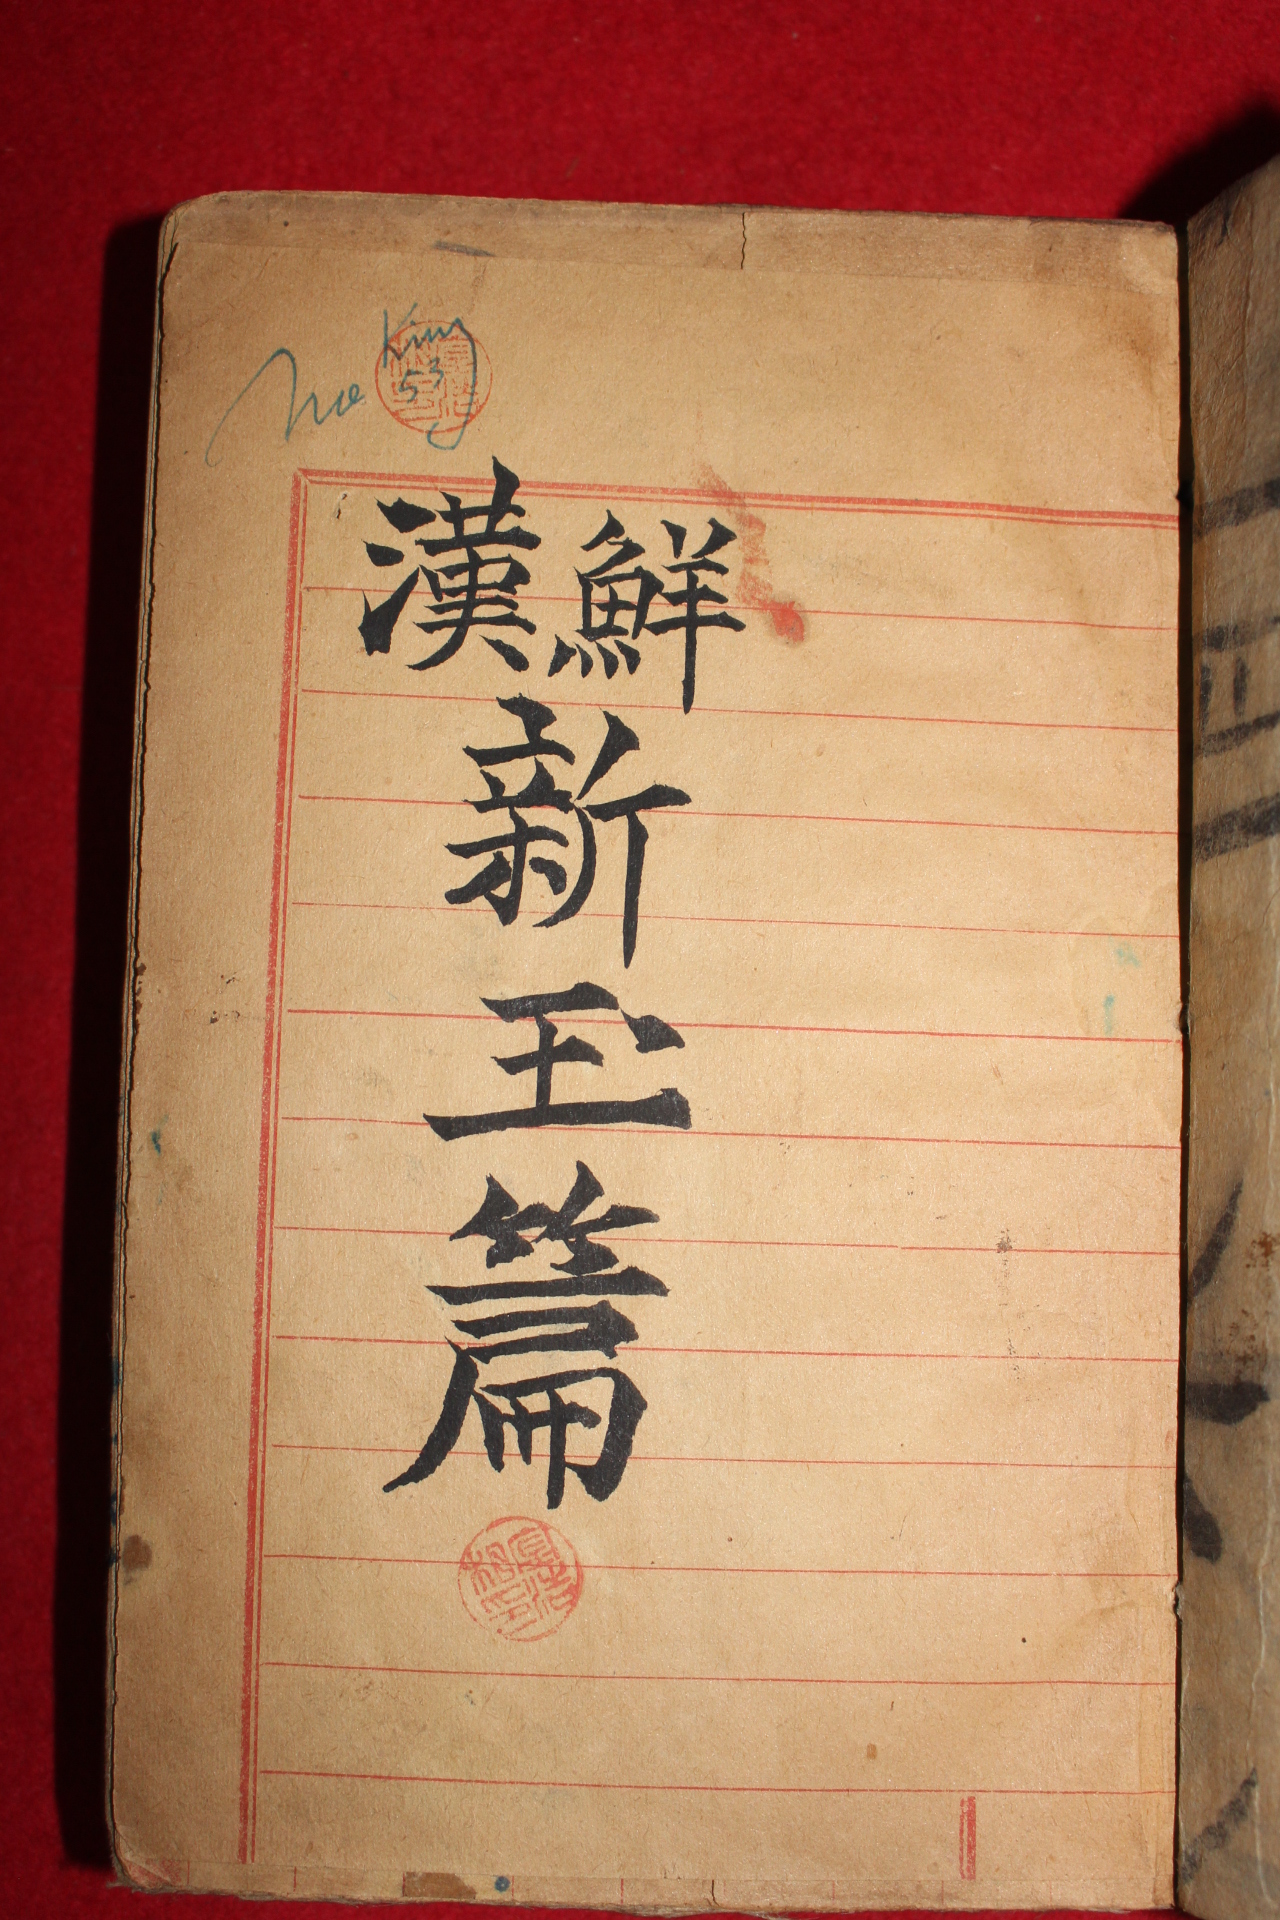 King
53
漢鮮
新
玉
篇